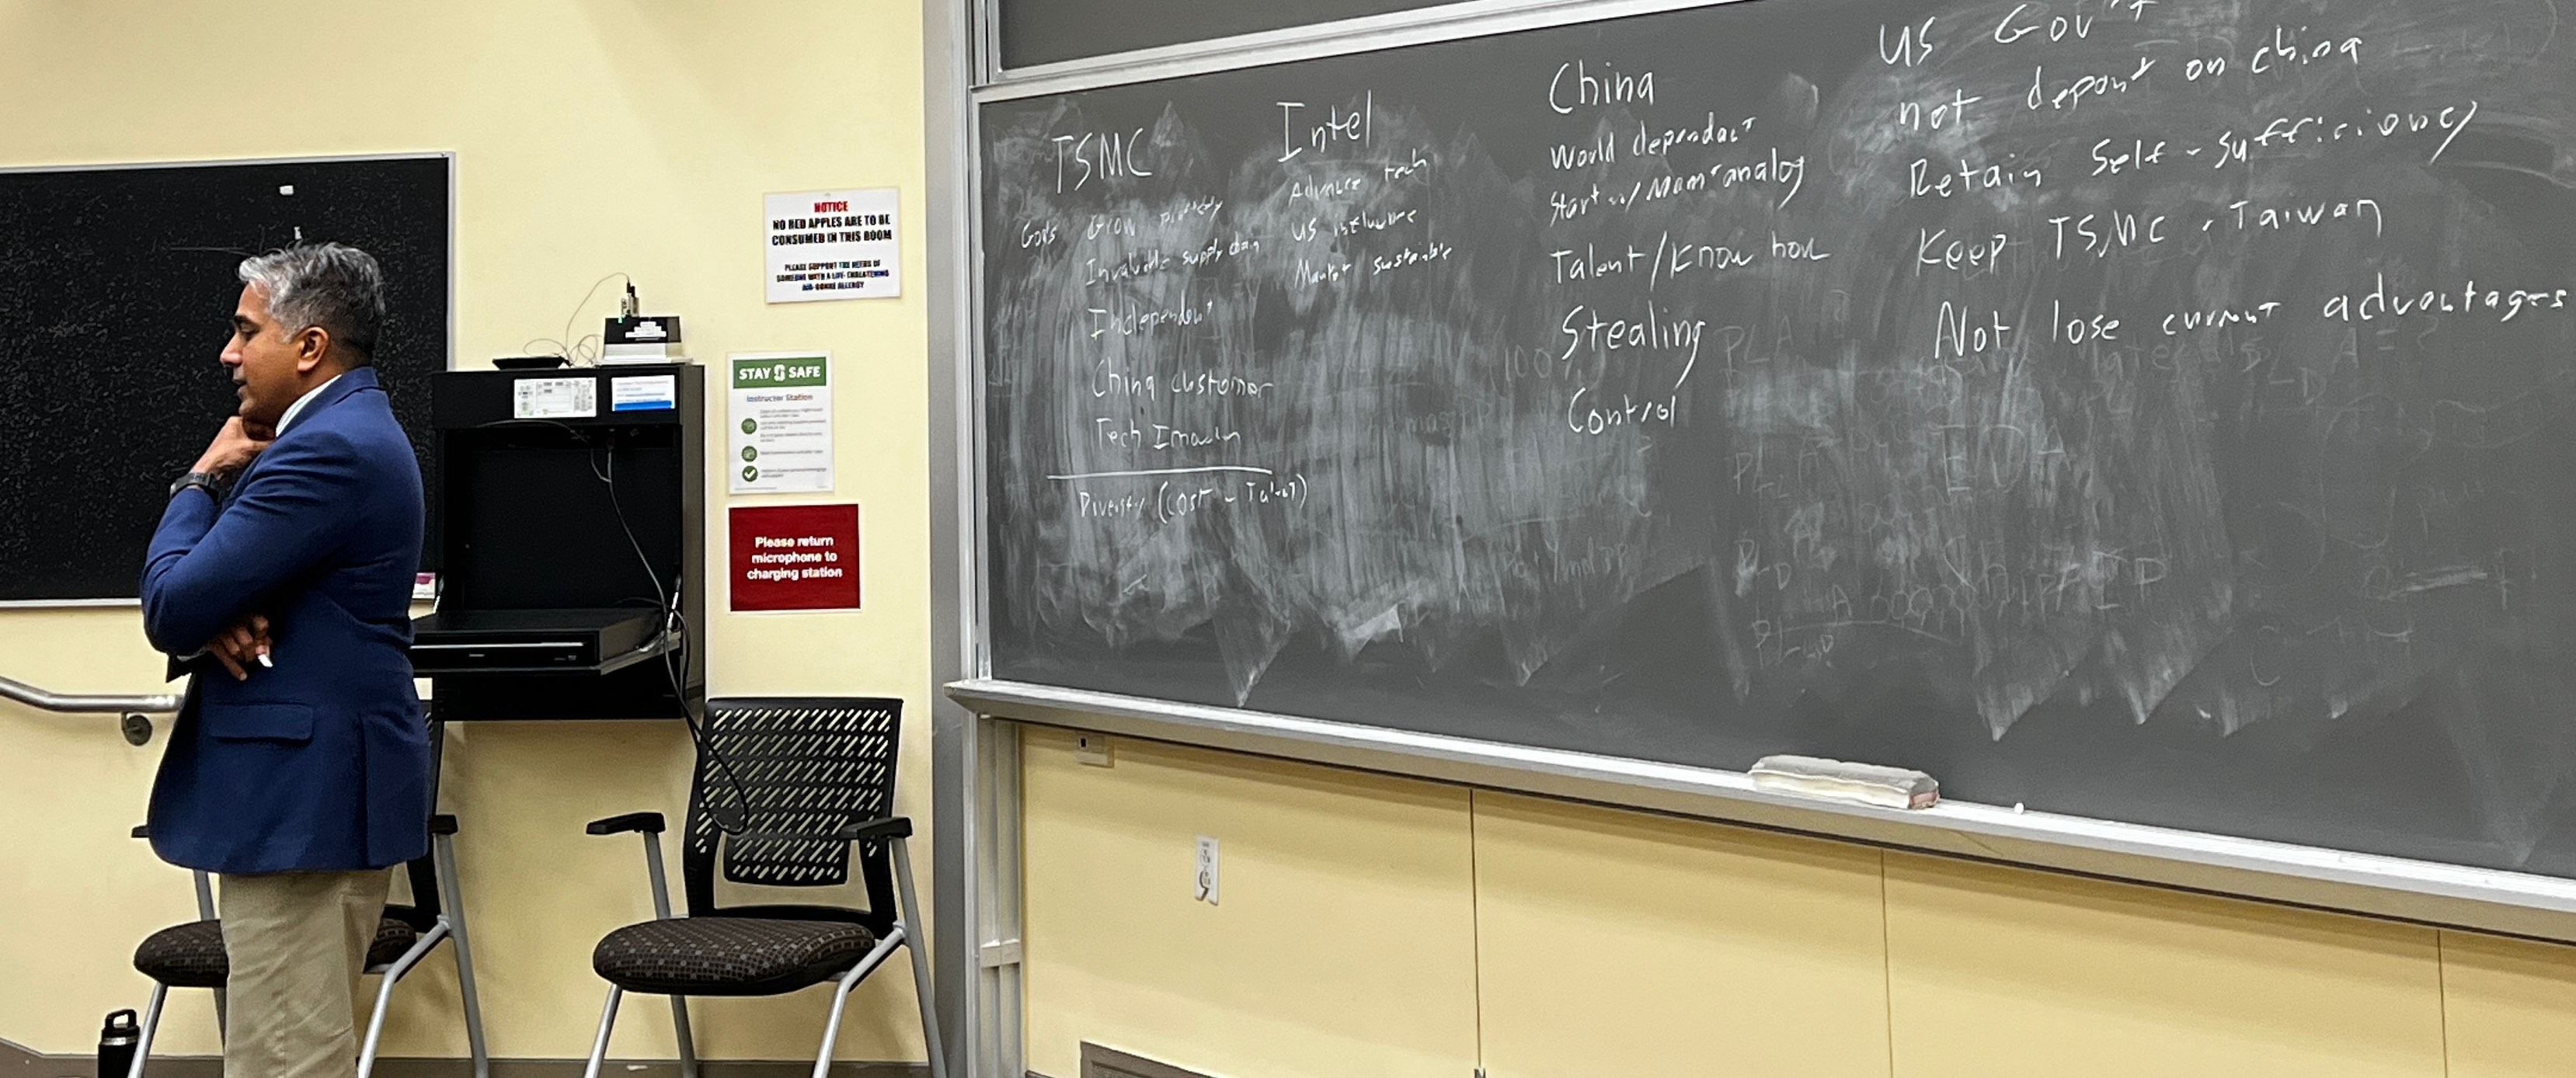 NOTICE
NO RED APPLES ARE TO BE
CONSUMED IN THIS ROOM
PLEASE SUPPORT THE NEEDS OF
SOMEONE WITH A LIFE-THREATENING
AIR-BORNE ALLERGY
STAY SAFE
Instructor Station
Please return
microphone to
charging station
TSMC
Goals Grow
Invaluable supply chain
Independent
China customer
Tech
Diversity (cost - Talent)
Intel
Advance tech
US influence
Market sustainable
China
World dependant
Start w/ Mem analog
Talent/Know how
Stealing
Control
US Gov't
not depend on china
Retain Self-sufficiency
Keep TSMC Taiwan
Not lose current advantages